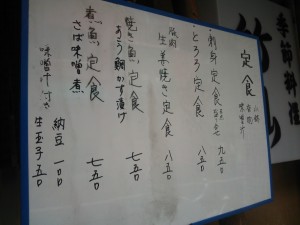 定食
小鉢
味噌汁
刺身定食 九五〇
とろろ定食 八五〇
豚肉
生姜焼き定食 八五〇
焼き魚定食 七五〇
あこう鯛かす漬け
煮魚定食 七五〇
さば味噌煮
味噌汁付き
納豆 一〇〇
生玉子 五〇
季節料理
竹